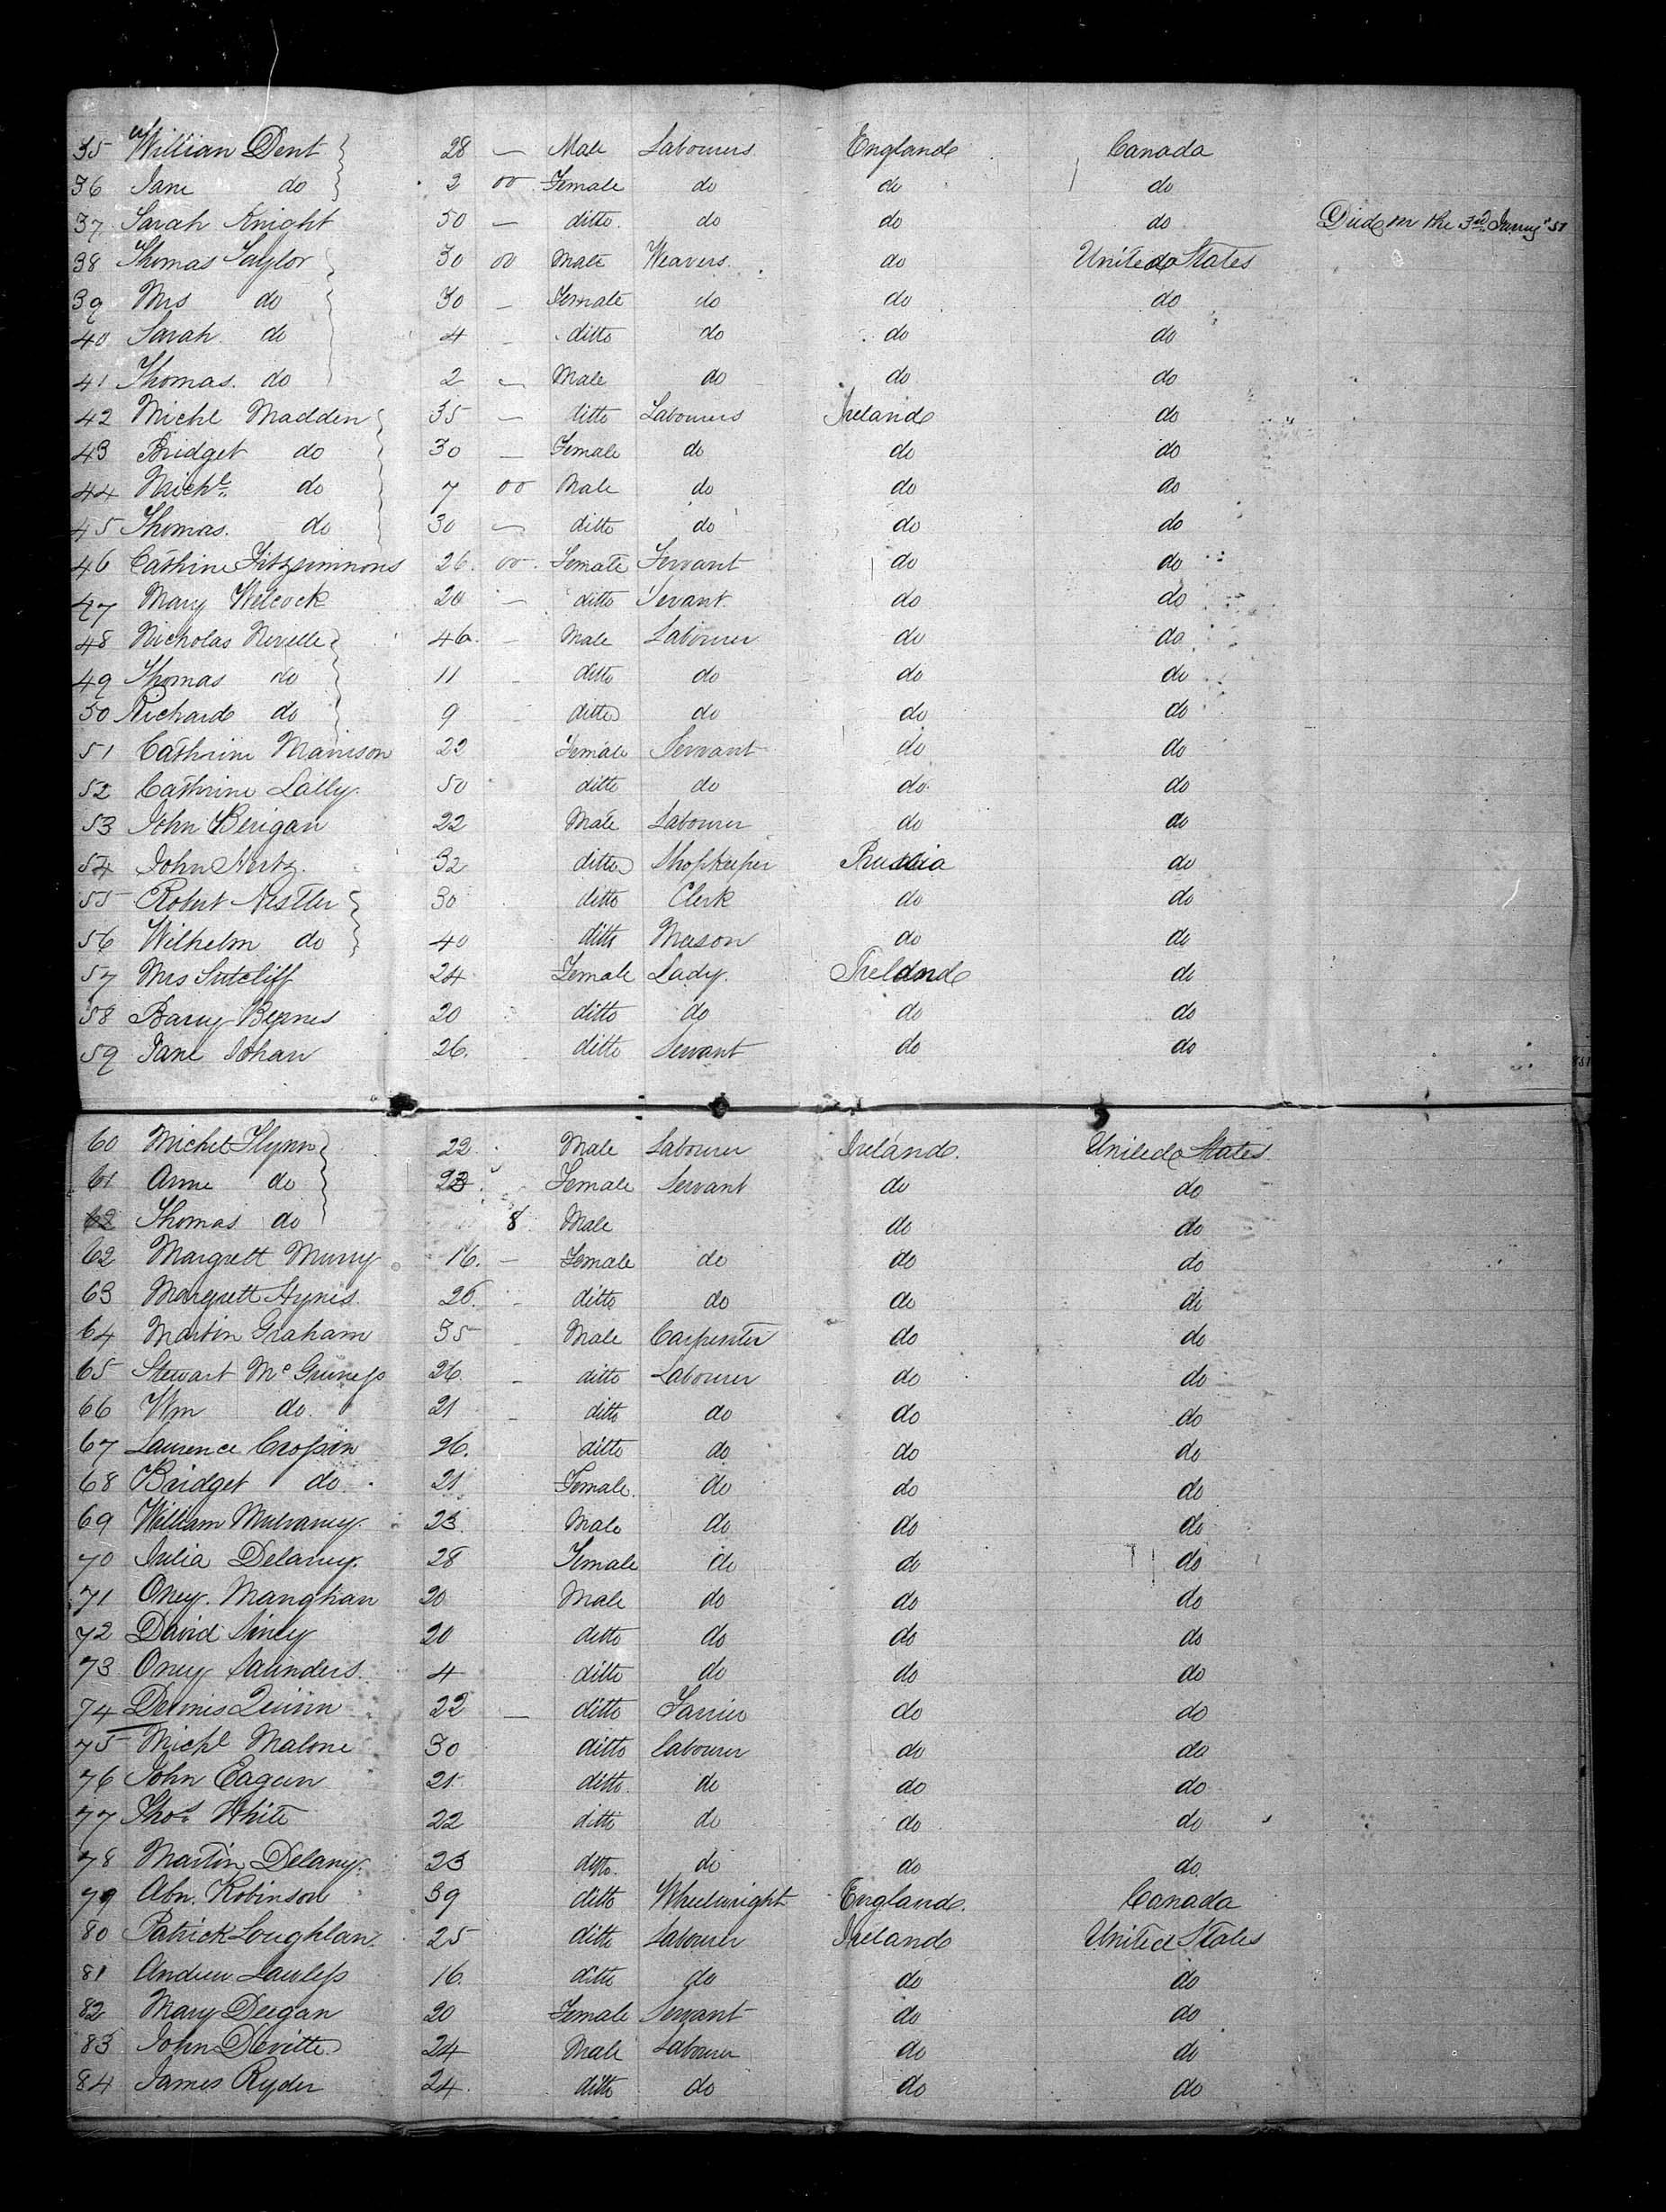 35 William Dent 28 — Male Labourers England Canada
36 Jane do 2 00 Female do do do
37 Sarah Knight 50 — ditto do do do Died on the 3rd 51
38 Thomas Taylor 30 00 Male Weavers do United States
39 Mrs do 30 — Female do do do
40 Sarah do 4 - ditto do do do
41 Thomas do 2 — Male do do do
42 Michl Madden 35 — ditto Labourers Ireland do
43 Bridget do 30 — Female do do do
44 Michl do 7 00 Male do do do
45 Thomas do 30 — ditto do do do
46 Cathrine Fitzsimmons 26 00 Female Servant do do
47 Mary Welcock 20 — ditto Servant do do
48 Nicholas Nevelle 46 - Male Labourer do do
49 Thomas do 11 - ditto do do do
50 Richard do 9 - ditto do do do
51 Cathrine 22 Female Servant do do
52 Cathrine Lally 50 ditto do do do
53 John Berigan 22 Male Labourer do do
54 John 32 ditto Shopkeeper Prussia do
55 Robert Nestler 30 ditto Clerk do do
56 Wilhelm do 40 ditto Mason do do
57 Mrs Sutcliff 24 Female Lady Ireland do
58 20 ditto do do do
59 Jane 26 ditto Servant do do
60 Michel Flynn 22 Male Labourer Ireland United States
61 Anne do 23 Female Servant do do
62 Thomas do 8 Male do do
62 Margrett Murry 16 — Female do do do
63 Margrett Hynes 26 - ditto do do do
64 Martin Graham 35 - Male Carpenter do do
65 Stewart 26 - ditto Labourer do do
66 Wm do 21 - ditto do do do
67 Laurence 26 ditto do do do
68 Bridget do 21 Female do do do
69 William Mulvaney 23 Male do do do
70 Julia Delaney 28 Female do do do
71 Oney Manghan 20 Male do do do
72 David 20 ditto do do do
73 Oney Saunders 4 ditto do do do
74 Dennis Quinn 22 — ditto Farrier do do
75 Michl Malone 30 ditto labourer do do
76 John Eagen 21 ditto do do do
77 Thos White 22 ditto do do do
78 Martin Delany 23 ditto do do do
79 Abn. Robinson 39 ditto Wheelwright England Canada
80 Patrick Loughlan 25 ditto Labourer Ireland United States
81 Andrew Lawless 16 ditto do do do
82 Mary Deegan 20 Female Servant do do
83 John Devitte 24 Male Labourer do do
84 James Ryder 24 ditto do do do